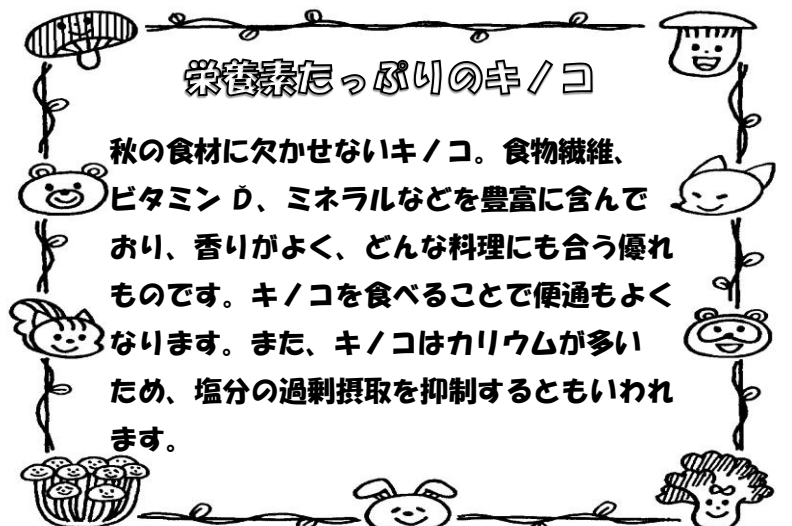 栄養素たっぷりのキノコ
秋の食材に欠かせないキノコ。食物繊維、
ビタミン Ď、ミネラルなどを豊富に含んで
おり、香りがよく、どんな料理にも合う優れ
ものです。キノコを食べることで便通もよく
なります。また、キノコはカリウムが多い
ため、塩分の過剰摂取を抑制するともいわれ
ます。